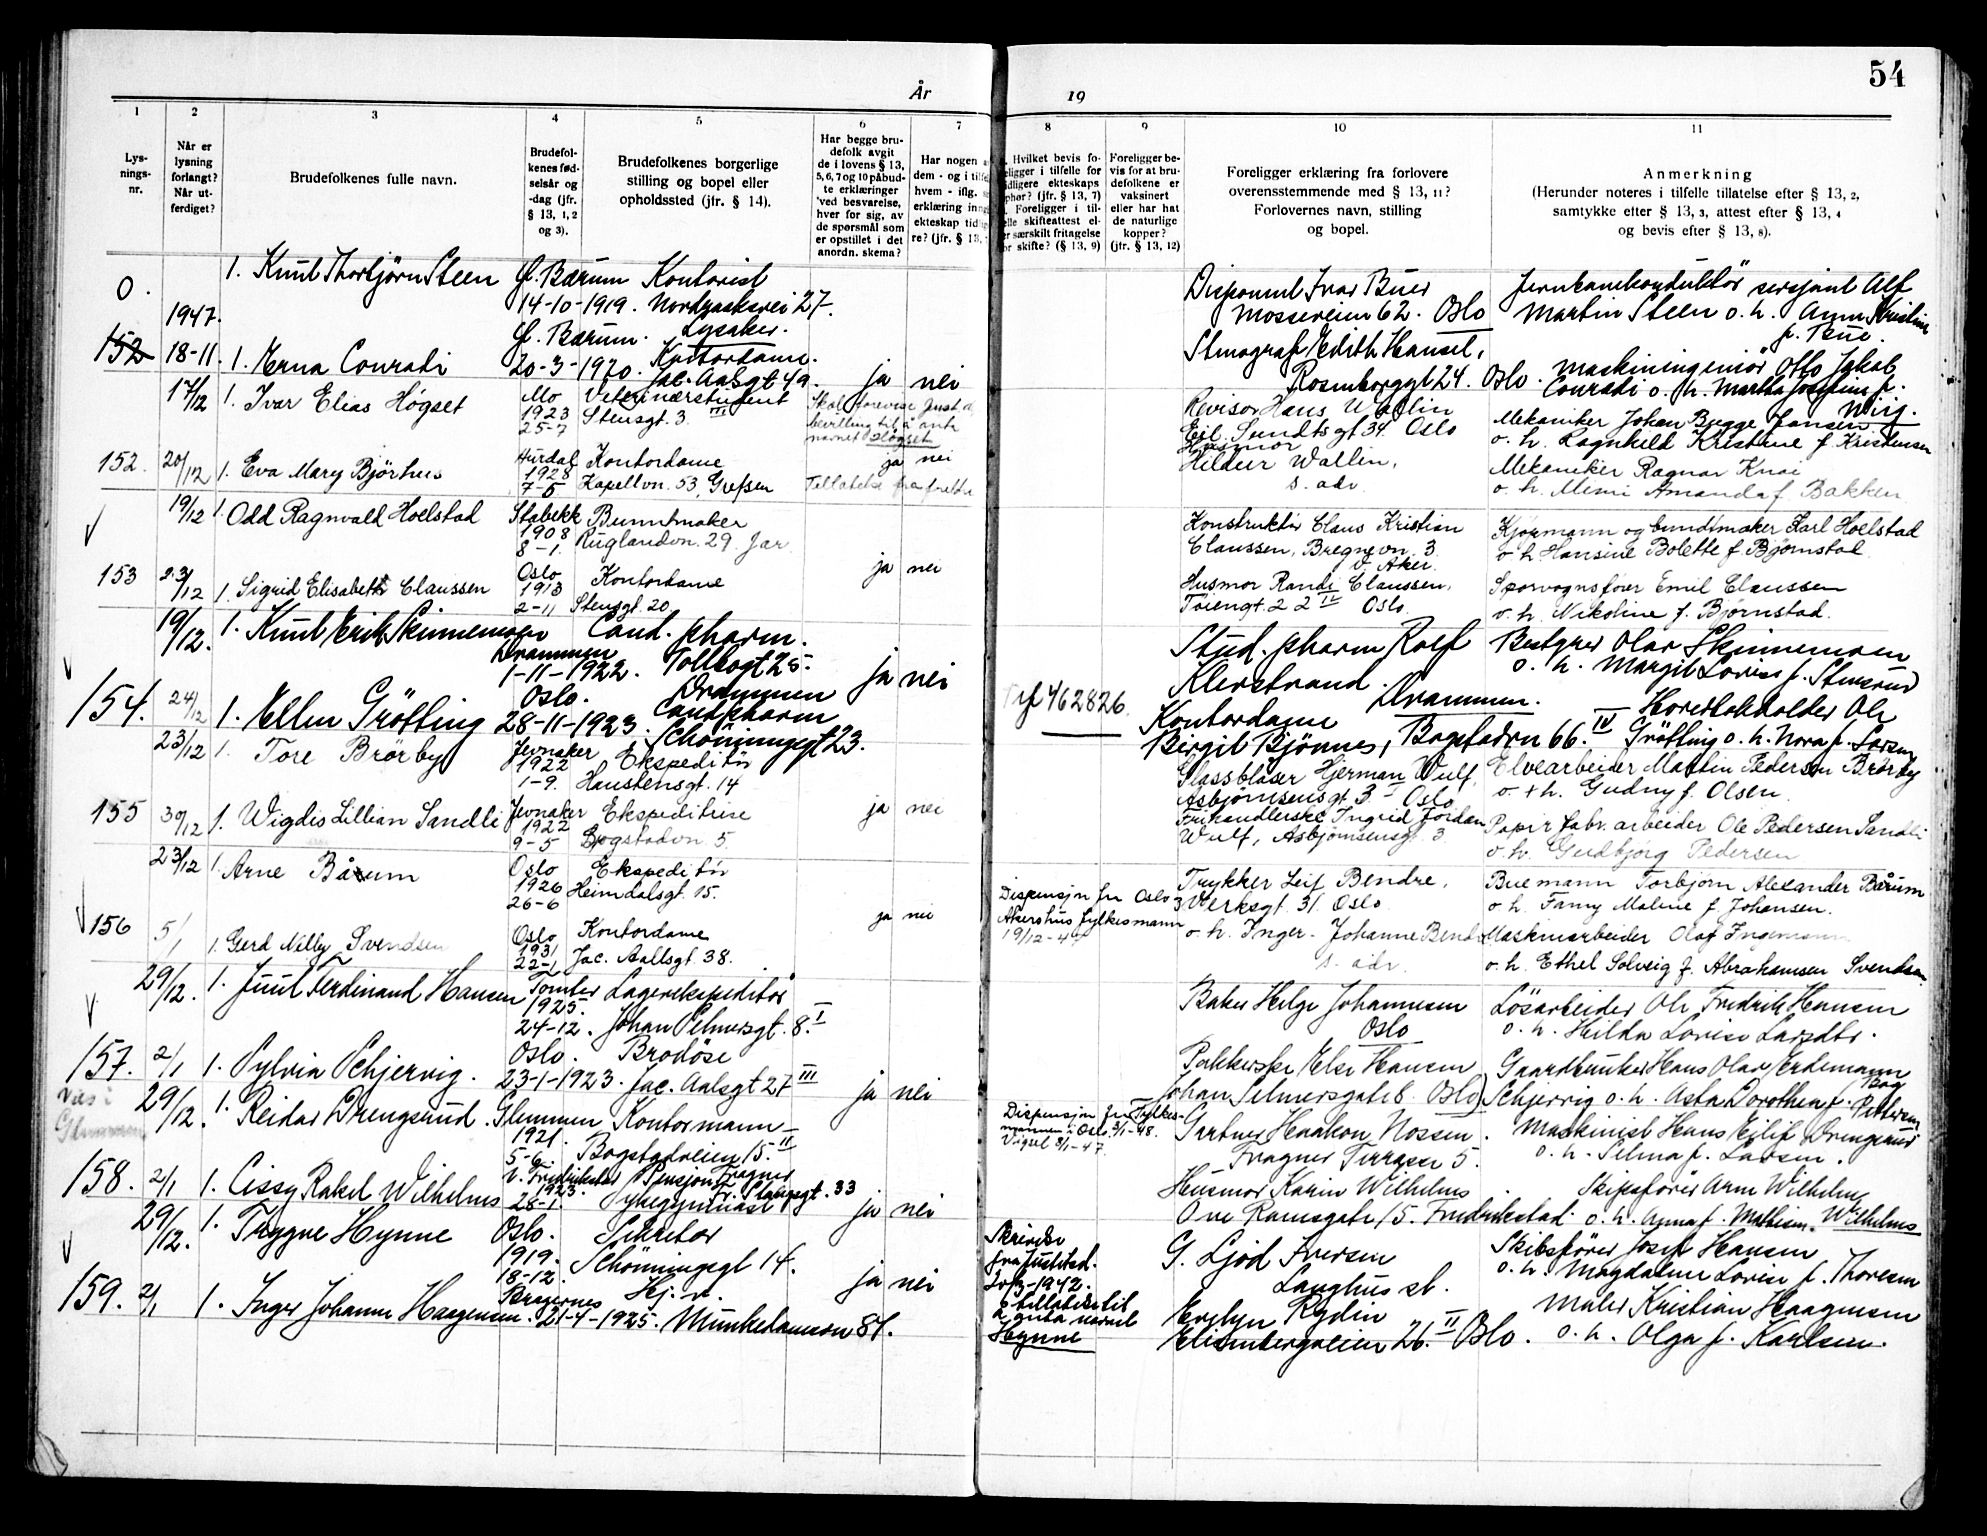 54
År
19
1
2
3
4
5
6
7
8
9
10
11
Lys-
nings-
nr.
Når er
lysning
forlangt?
Når ut-
ferdiget?
Brudefolkenes fulle navn.
Brudefol-
kenes fød-
selsår og
-dag (jfr.
§ 13, 1, 2
og 3).
Brudefolkenes borgerlige
stilling og bopel eller
opholdssted (jfr. § 14).
Har begge bru-
defolk avgit
de i lovens § 13,
5, 6, 7 og 10 påbud-
te erklæringer
ved besvarelse,
hver for sig, av
de spørsmål som
er opstillet i det
anordn. skema?
Har nogen a
dem - og i tilfe
hvem - iflg. s
erklæring inng
ekteskap tidlig
re? (jfr. § 13,
Hvilket bevis fo-
eligger i tilfelle for
idligere ekteskaps
phør? (jfr. § 13, 7)
Foreligger i til-
elle skifteattest el-
er særskilt fritagelse
or skifte? (§ 13, 9)
Foreligger be-
vis for at bru-
defolkene er
vaksinert
eller har hat
de naturlige
kopper?
(jfr. § 13, 12)
Foreligger erklæring fra forlovere
overensstemmende med § 13, 11?
Forlovernes navn, stilling
og bopel.
Anmerkning
(Herunder noteres i tilfelle tillatelse efter § 13, 2,
samtykke efter § 13, 3, attest efter § 13, 4
og bevis efter § 13, 8).
0.
1947.
1. Knut Thorbjørn Steen
f. Bærum Kontorist
14-10-1919. Nordraaksvei 27.
Lysaker.
Disponent Ivar Buer
Mosseveien 62. Oslo
Jernbanekonduktør sersjant Alf
Martin Steen o. h. Anna Kristine
f. Bue.
152
18-11.
1. Erna Conradi
f. Bærum.
20-3-1920. Kontordame.
Jac. Aalsgt 49.
ja nei
Stenograf Edith Hansel,
Rosenborggt 24. Oslo.
Maskiningeniør Otto Jakob
Conradi o. h. Martha Josefine f.
Wiig.
17/12
1. Ivar Elias Høgset
Mo
1923
25-7
Veterinærstudent
Stensgt. 3 III
Skal forevise Just.d.
bevilling til å anta
navnet Høgset
Revisor Hans Wallin
Eil. Sundtsgt 34. Oslo
Mekaniker Johan Bugge Jansen
o. h. Ragnhild Kristine f. Kristensen
152.
20/12
1. Eva Mary Bjørhus
Hurdal
1928
7-5
Kontordame
Kapellvn. 53, Grefsen
ja nei
Tillatelse fra foreldre
Husmor
Hildur Wallin,
s. adr.
Mekaniker Ragnar Knai
o. h. Mimi Amanda f. Bakken
19/12
1. Odd Ragnvald Hoelstad
Stabekk
1908
8-1.
Buntmaker
Ruglandvn. 29. Jar
Konstruktør Claus Kristian
Claussen, Bregnevn. 3.
V. Aker.
Kjørmann og buntmaker Karl Hoelstad
o. h. Hansine Bolette f. Bjørnstad
153
23/12
1. Sigrid Elisabeth Claussen
Oslo
1913
2-11
Kontordame
Stensgt. 20
ja nei
Husmor Randi Claussen,
Tøiengt. 22 IV Oslo.
Sporvognsfører Emil Claussen
o. h. Nikoline f. Bjørnstad.
19/12.
1. Knut Erik Skinnemoen
Drammen
1-11-1922.
Cand. pharm.
Tollbogt 25.
Drammen
ja nei
Stud. pharm Rolf
Klerstrand.
Drammen.
Bestyrer Olav Skinnemoen
o. h. Margit Lovise f. Stensrud
154.
24/12
1. Ellen Grøtting
Oslo.
28-11-1923.
Cand pharm
Schønningsgt 23.
Trf 462826.
Kontordame
Birgit Bjønnes, Bogstadvn 66. IV
Hovedbokholder Ole
Grøtting o. h. Nora f. Larsen
23/12
1. Tore Brørby
Jevnaker
1922
1-9.
Ekspeditør
Haustensgt. 14
Glassblåser Hjerman Wulf,
Asbjørnsensgt. 3 I Oslo
Elvearbeider Martin Pedersen Brørby
o. h. Gudny f. Olsen
155
30/12
1. Wigdis Lillian Sandli
Jevnaker
1922
9-5
Ekspeditrise
Bogstadvn 5.
ja nei
Frihandlerske Ingrid Jordan
Wulf, Asbjørnsensgt. 3
Papir fabr. arbeider Ole Pedersen Sandli
o. h. Gudbjørg Pedersen
23/12
1. Arne Bårum
Oslo
1926
26-6
Ekspeditør
Heimdalsgt. 15.
Dispensjon fra Oslo og
Akershus fylkesmann
19/12-47
Trykker Leif Bendre,
Verksgt. 31. Oslo.
Buemann Torbjørn Alexander Bårum
o. h. Fanny Maline f. Johansen.
156
5/1
1. Gerd Nelly Svendsen
Oslo
1931
22-1
Kontordame
Jac. Aallsgt. 38.
ja nei
o. h. Inger-Johanne Bendre
s. adr.
Maskinarbeider Olaf Ingemann
o. h. Ethel Solveig f. Abrahamsen Svendsen
29/12.
1. Juul Ferdinand Hansen
Tomter
1925.
24-12.
Lagerekspeditør
Johan Selmersgt. 8. I
Baker Helge Johannesen
Oslo
Løsarbeider Ole Fredrik Hansen
o. h. Hilda Lovise Larsdtr.
157.
2/1
1. Sylvia Schjervig.
Oslo.
23-1-1923.
Brodøse
Jac. Aalsgt 27 III
ja nei
Pakkerske Else Hansen
Johan Selmersgate 8. Oslo
Gaardbruker Hans Olav Erdemann
Schjervig o. h. Asta Dorothea f. Pettersen
Vies i
Glemmen
29/12.
1. Reidar Drengsrud.
Glemmen
1921.
5-6.
Kontormann
Bogstadveien 15. II
Dispensjon fra Fylkes-
mannen i Oslo 3/1-48.
Vigsel 3/1-47.
Gartner Haakon Nossen.
Frogner Terrasse 5.
Maskinist Hans Eilif Drengsrud
o. h. Selma f. Larsen.
158.
2/1
1. Cissy Rakel Wilhelms
v. Fredrikstad
1923.
28-1.
Pensjon Frogner
Fr. Stangsgt. 33
Sykegymnast
ja nei
Husmor Karin Wilhelms
Ove Ramsgate 15. Fredrikstad.
Skipsfører Arne Wilhelms
o. h. Anna f. Mathisen. Wilhelms
29/12.
1. Trygve Hynne
Oslo.
1919.
18-12.
Sekretær
Schønningsgt 14.
Skrivelse
fra Justisd.
1942.
tillatelse til
å anta navnet
Hynne
G. Ljød Iversen
Langhus st.
Skibsfører Josef Hansen
o. h. Magdalene Lovise f. Thoresen
159.
2/1
1. Inger Johanne Haagensen.
Bragernes
21-4-1925.
Hj. v.
Munkedamsvn 84.
ja nei
Evelyn Rydin
Elisenbergveien 26. II Oslo.
Maler Kristian Haagensen
o. h. Olga f. Karlsen.